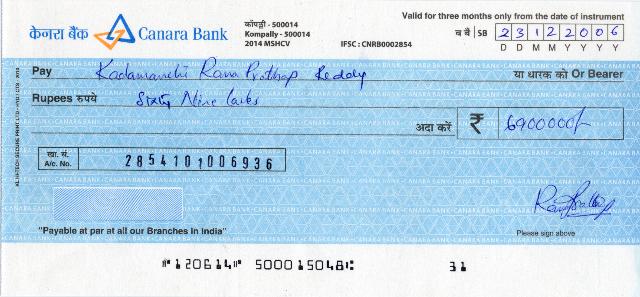 केनरा बैंक Canara Bank
कोंपल्ली - 500014
Kompally - 500014
2014 MSHCV
IFSC : CNRB0002854
Valid for three months only from the date of instrument
SB 23122006
D D M M Y Y Y Y
Pay Kadamanchi Rana Prathap Reddy या धारक को Or Bearer
Rupees रुपये Sixty Nine lacks
अदा करें ₹ 6900000/-
खा. सं.
A/c. No. 2854101006936
"Payable at par at all our Branches in India"
Please sign above
⑈120614⑈ 500015048⑆ 31